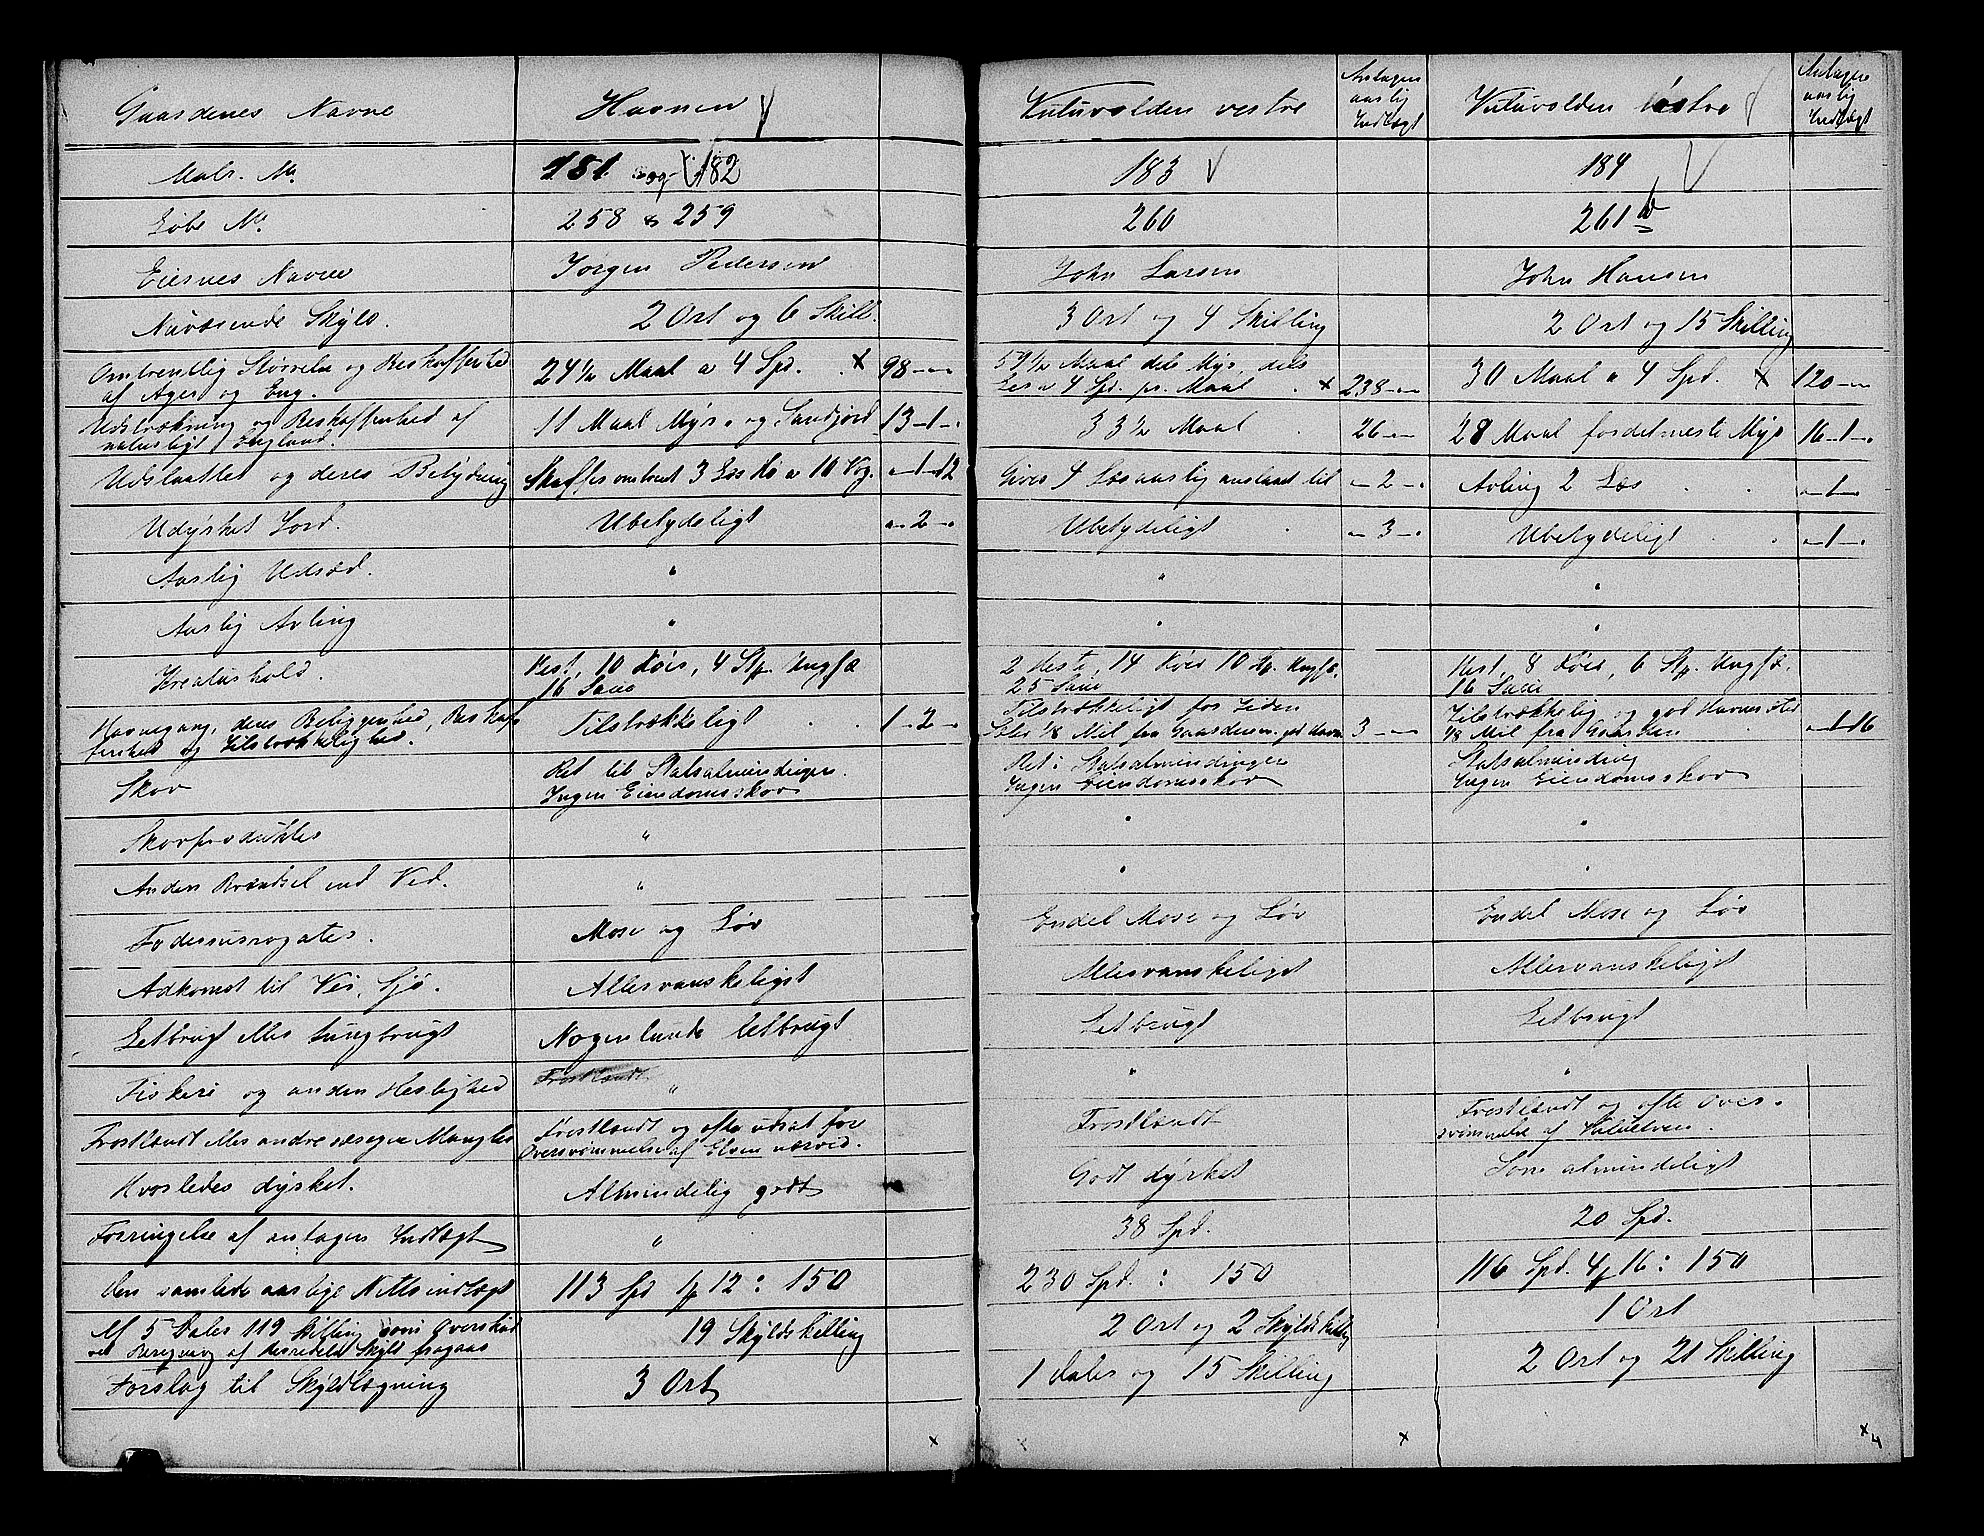 Gaardenes Navne Havnen Vuluvolden vestre Antagen aarlig Indtægt Vuluvolden østre Antagen aarlig Indtægt
Matr. No 181 og 182 183 184
Løbe No 258 & 259 260 261 b
Eiernes Navne Jørgen Pedersen John Larsen John Hansen
Nuværende Skyld. 2 Ort og 6 Skill. 3 Ort og 4 Skilling 2 Ort og 15 Skilling
Omtrentlig Størrelse og Beskaffenhed
af Ager og Eng. 24 1/2 Maal a 4 Spd. x 98 - - 59 1/2 Maal dels Myr, dels
Leer a 4 Spd. pr. Maal x 238 - - 30 Maal a 4 Spd. x 120 - -
Udstrækning og Beskaffenhed af
naturligt England. 11 Maal Myr. og Sandjord 13 - 1 - 33 1/2 Maal 26 - - 28 Maal fordetmeste Myr 16 - 1 -
Udslaatter og deres Betydning Skaffer omtrent 3 Læs Hø a 16 Vog. - 1 - 12 Gives 4 Læs aarlig anslaaet til - 2 - Avling 2 Læs - 1 -
Udyrket Jord. Ubetydeligt - 2 - Ubetydeligt - 3 - Ubetydeligt - 1 -
Aarlig Udsæd. " " "
Aarlig Avling " " "
Kreaturhold. Hest, 10 Kjør, 4 Stp. Ungfæ
16 Sauer 2 Heste, 14 Kjør 10 Stp. Ungfæ.
25 Sauer Hest, 8 Kjør, 6 Stp. Ungfæ.
16 Sauer
Havnegang, deres Beliggenhed, Beskaf-
fenhed og Tilstrækkelighed. Tilstrækkeligt 1 - 2 - Tilstrækkeligt for Tiden
1/8 Mil fra Gaarden, god Havn 3 - - Tilstrækkelig og god Havn sted
1/8 Mil fra Gaarden - 1 - 16
Skov Ret til Statsalmindingen.
Ingen Eiendomsskov Ret i Statsalmindingen
Ingen Eiendomsskov Statsalminding
Ingen Eiendomsskov
Skovprodukter " " "
Anden Brændsel end Ved. " " "
Fodersurrogater. Mose og Løv Endel Mose og Løv Endel Mose og Løv
Adkomst til Vei, Sjø. Allervanskeligst Allervanskeligst Allervanskeligst
Letbrugt eller tungbrugt Nogenlunde letbrugt Letbrugt Letbrugt
Fiskeri og anden Herlighed " " "
Frostlændt eller andre væsegen Mangler Frostlændt og ofte udsat for
Oversvømmelse af Elven nærved. Frostlændt Frostlændt og ofte Over-
svømmelse af Vuluelven.
Hvorledes dyrket. Almindelig godt Godt dyrket Som almindeligt
Forringelse af antagen Indtægt " 38 Spd. 20 Spd.
Den samlede aarlige Nettoindtægt 113 Spd 1 # 12 : 150 230 Spd. : 150 116 Spd. 4 # 16 : 150
Af 5 Daler 119 Skilling som Overskud
ved Beregning af Herredets Skyld fragaar 19 Skyldskilling 2 Ort og 2 Skyldskilling 1 Ort
Forslag til Skyldlægning 3 Ort 1 Daler og 15 Skilling 2 Ort og 21 Skilling